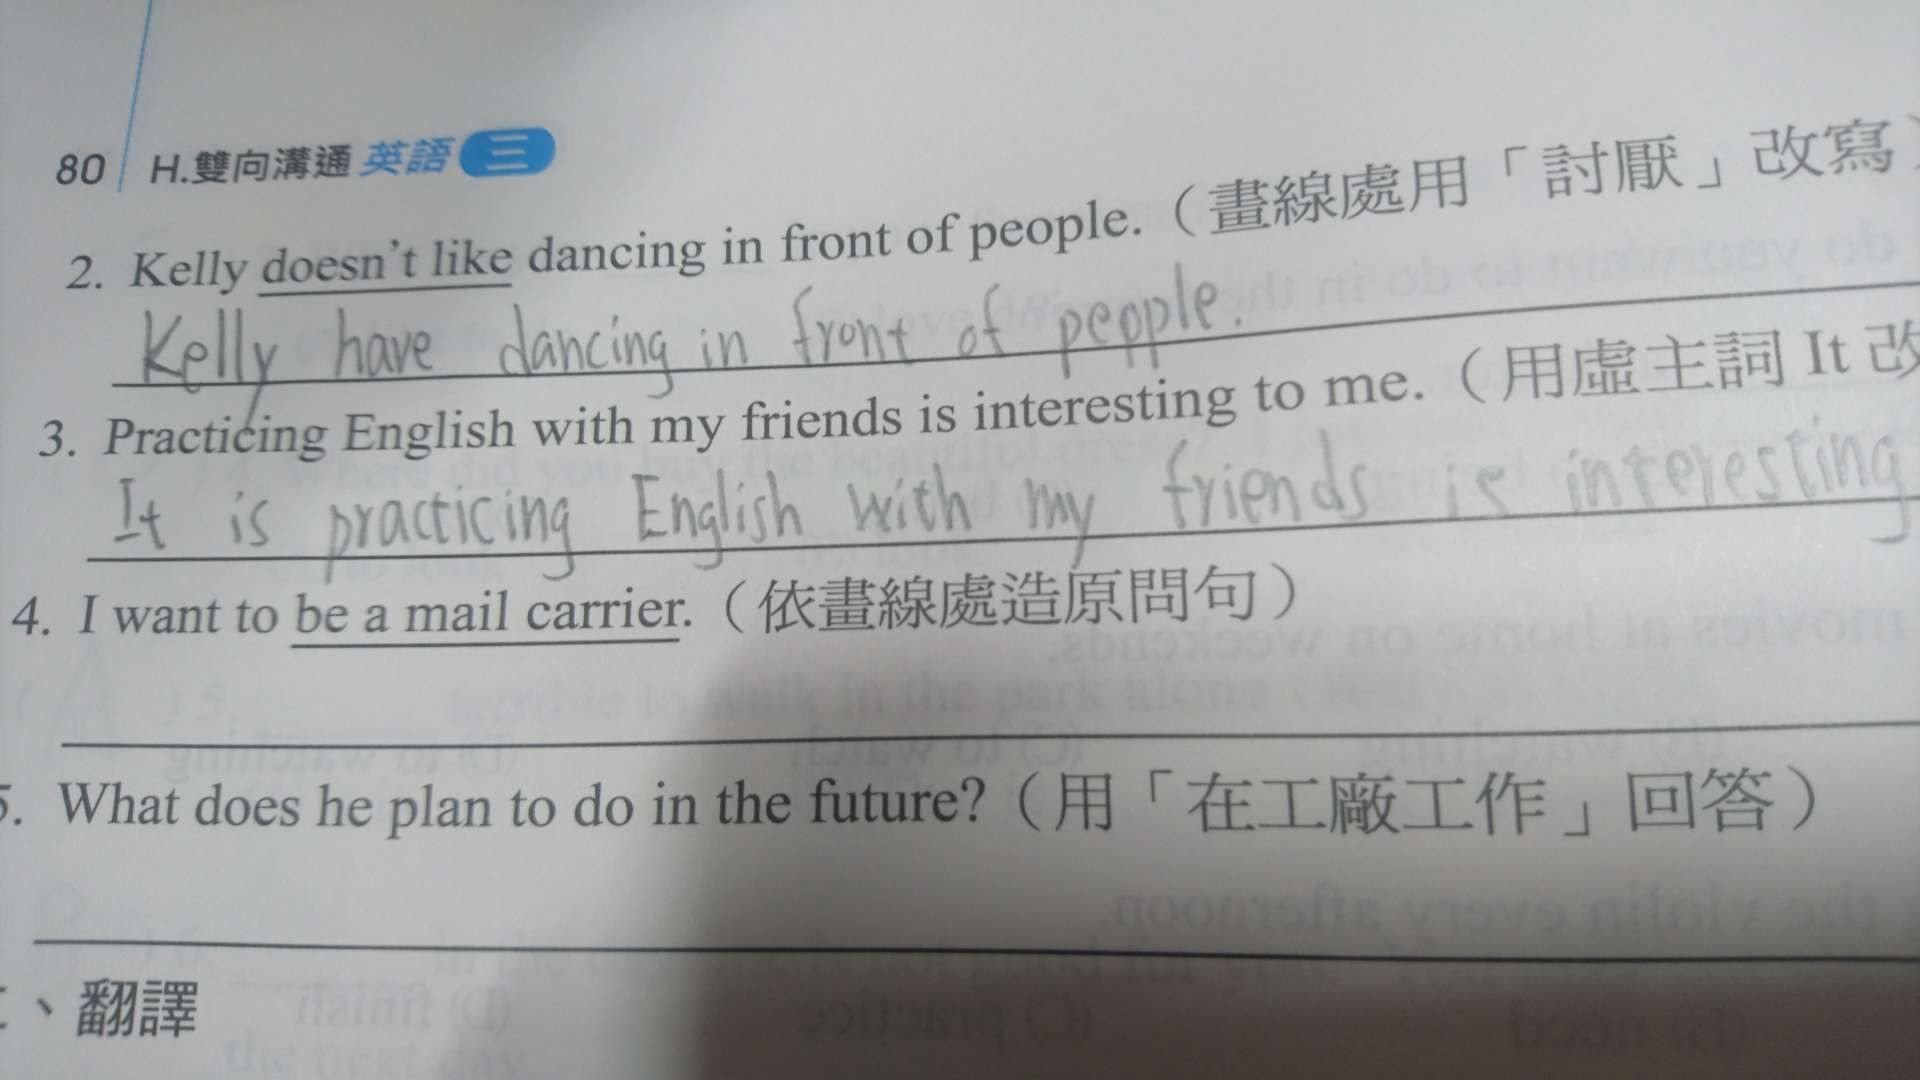 80 H.雙向溝通 英語 三
2. Kelly doesn't like dancing in front of people.（畫線處用「討厭」改寫）
Kelly have dancing in front of people.
3. Practicing English with my friends is interesting to me.（用虛主詞 It 改
It is practicing English with my friends is interesting
4. I want to be a mail carrier.（依畫線處造原問句）
5. What does he plan to do in the future?（用「在工廠工作」回答）
、翻譯